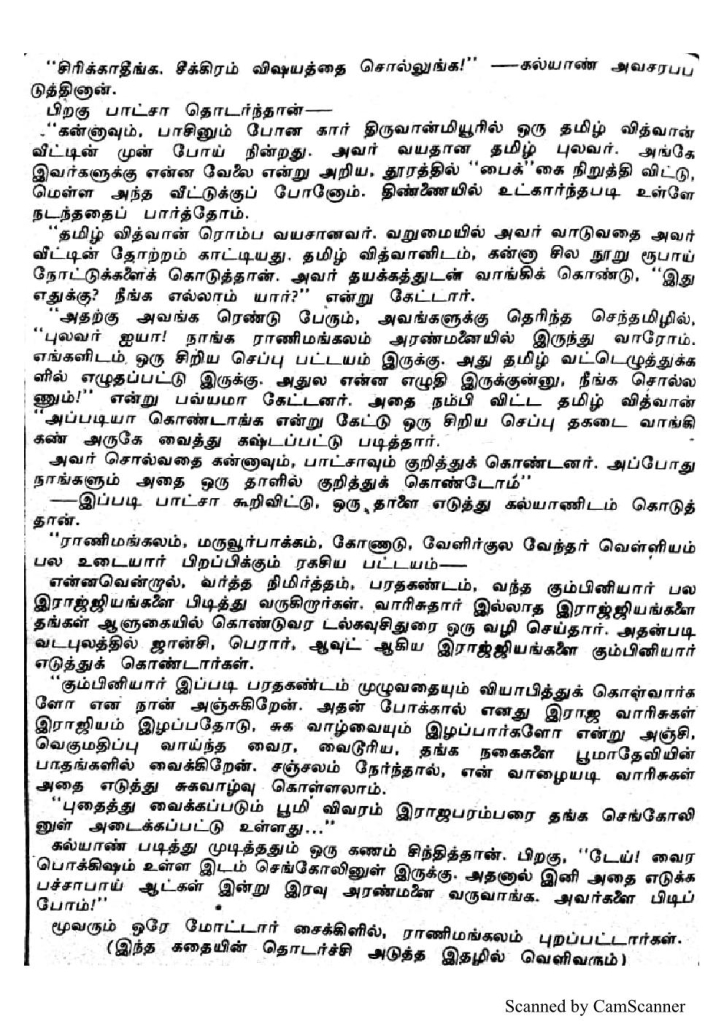 “சிரிக்காதீங்க. சீக்கிரம் விஷயத்தை சொல்லுங்க!” —கல்யாண் அவசரபப
டுத்தினான்.
பிறகு பாட்சா தொடர்ந்தான்—
“கன்னாவும், பாசினும் போன கார் திருவான்மியூரில் ஒரு தமிழ் வித்வான்
வீட்டின் முன் போய் நின்றது. அவர் வயதான தமிழ் புலவர். அங்கே
இவர்களுக்கு என்ன வேலை என்று அறிய, தூரத்தில் “பைக்”கை நிறுத்தி விட்டு,
மெள்ள அந்த வீட்டுக்குப் போனோம். திண்ணையில் உட்கார்ந்தபடி உள்ளே
நடந்ததைப் பார்த்தோம்.
“தமிழ் வித்வான் ரொம்ப வயசானவர். வறுமையில் அவர் வாடுவதை அவர்
வீட்டின் தோற்றம் காட்டியது. தமிழ் வித்வானிடம், கன்னா சில நூறு ரூபாய்
நோட்டுக்களைக் கொடுத்தான். அவர் தயக்கத்துடன் வாங்கிக் கொண்டு, “இது
எதுக்கு? நீங்க எல்லாம் யார்?” என்று கேட்டார்.
“அதற்கு அவங்க ரெண்டு பேரும், அவங்களுக்கு தெரிந்த செந்தமிழில்,
“புலவர் ஐயா! நாங்க ராணிமங்கலம் அரண்மனையில் இருந்து வாரோம்.
எங்களிடம் ஒரு சிறிய செப்பு பட்டயம் இருக்கு. அது தமிழ் வட்டெழுத்துக்க
ளில் எழுதப்பட்டு இருக்கு. அதுல என்ன எழுதி இருக்குன்னு, நீங்க சொல்ல
ணும்!” என்று பவ்யமா கேட்டனர். அதை நம்பி விட்ட தமிழ் வித்வான்
“அப்படியா கொண்டாங்க என்று கேட்டு ஒரு சிறிய செப்பு தகடை வாங்கி
கண் அருகே வைத்து கஷ்டப்பட்டு படித்தார்.
அவர் சொல்வதை கன்னாவும், பாட்சாவும் குறித்துக் கொண்டனர். அப்போது
நாங்களும் அதை ஒரு தாளில் குறித்துக் கொண்டோம்”
—இப்படி பாட்சா கூறிவிட்டு, ஒரு தாளை எடுத்து கல்யாணிடம் கொடுத்
தான்.
“ராணிமங்கலம், மருவூர்பாக்கம், கோணாடு, வேளிர்குல வேந்தர் வெள்ளியம்
பல உடையார் பிறப்பிக்கும் ரகசிய பட்டயம்—
என்னவென்றால், வர்த்த நிமிர்த்தம், பரதகண்டம், வந்த கும்பினியார் பல
இராஜ்ஜியங்களை பிடித்து வருகிறார்கள். வாரிசுதார் இல்லாத இராஜ்ஜியங்களை
தங்கள் ஆளுகையில் கொண்டுவர டல்கவுசிதுரை ஒரு வழி செய்தார். அதன்படி
வடபுலத்தில் ஜான்சி, பெரார், ஆவுட் ஆகிய இராஜ்ஜியங்களை கும்பினியார்
எடுத்துக் கொண்டார்கள்.
“கும்பினியார் இப்படி பரதகண்டம் முழுவதையும் வியாபித்துக் கொள்வார்க
ளோ என நான் அஞ்சுகிறேன். அதன் போக்கால் எனது இராஜ வாரிசுகள்
இராஜியம் இழப்பதோடு, சுக வாழ்வையும் இழப்பார்களோ என்று அஞ்சி,
வெகுமதிப்பு வாய்ந்த வைர, வைடூரிய, தங்க நகைகளை பூமாதேவியின்
பாதங்களில் வைக்கிறேன். சஞ்சலம் நேர்ந்தால், என் வாழையடி வாரிசுகள்
அதை எடுத்து சுகவாழ்வு கொள்ளலாம்.
“புதைத்து வைக்கப்படும் பூமி விவரம் இராஜபரம்பரை தங்க செங்கோலி
னுள் அடைக்கப்பட்டு உள்ளது...”
கல்யாண் படித்து முடித்ததும் ஒரு கணம் சிந்தித்தான். பிறகு, “டேய்! வைர
பொக்கிஷம் உள்ள இடம் செங்கோலினுள் இருக்கு. அதனால் இனி அதை எடுக்க
பச்சாபாய் ஆட்கள் இன்று இரவு அரண்மனை வருவாங்க. அவர்களை பிடிப்
போம்!”
மூவரும் ஒரே மோட்டார் சைக்கிளில், ராணிமங்கலம் புறப்பட்டார்கள்.
(இந்த கதையின் தொடர்ச்சி அடுத்த இதழில் வெளிவரும்)
Scanned by CamScanner